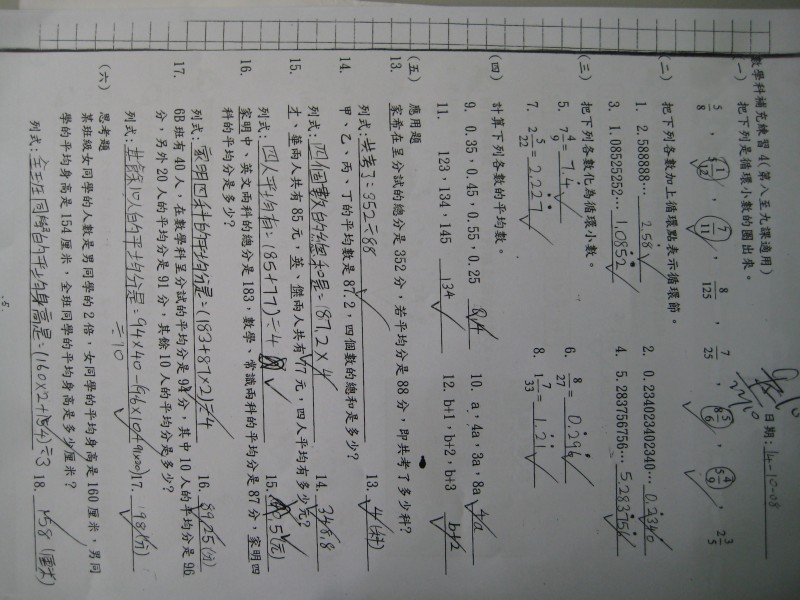 數學科補充練習4(第八至九課適用)
日期: 14-10-08
(一) 把下列是循環小數的圈出來。
5/8 , 5 1/12 , 7/11 , 8/125 , 7/25 , 8 5/6 , 5 4/9 , 2 3/5
(二) 把下列各數加上循環點表示循環節。
1. 2.588888… 2.58̇ 2. 0.234023402340… 0.2̇340̇
3. 1.08525252… 1.0852 4. 5.283756756… 5.283̇756̇
(三) 把下列各數化為循環小數。
5. 7 4/9 = 7.4̇ 6. 8/27 = 0.2̇96̇
7. 2 5/22 = 2.22̇7̇ 8. 1 7/33 = 1.2̇1̇
(四) 計算下列各數的平均數。
9. 0.35,0.45,0.55,0.25 0.4 10. a,4a,3a,8a 4a
11. 123,134,145 134 12. b+1,b+2,b+3 b+2
(五) 應用題
13. 家希在呈分試的總分是352分,若平均分是88分,即共考了多少科?
列式:共考了:352÷88 13. 4(科)
14. 甲、乙、丙、丁的平均數是87.2,四個數的總和是多少?
列式:四個數的總和是:87.2×4 14. 348.8
15. 才、華兩人共有85元,英、傑兩人共有77元,四人平均有多少元?
列式:四人平均有:(85+77)÷4 15. 40.5(元)
16. 家明中、英文兩科的總分是183,數學、常識兩科的平均分是87分,家明四
科的平均分是多少?
列式:家明四科的平均分是:(183+87×2)÷4 16. 89.25(分)
17. 6B班有40人,在數學科呈分試的平均分是94分,其中10人的平均分是96
分,另外20人的平均分是91分,其餘10人的平均分是多少?
列式:其餘10人的平均分是:94×40-(96×10+91×20) 17. 98(分)
÷10
(六) 思考題
某班級女同學的人數是男同學的2倍,女同學的平均身高是160厘米,男同
學的平均身高是154厘米,全班同學的平均身高是多少厘米?
列式:全班同學的平均身高是:(160×2+154)÷3 18. 158(厘米)